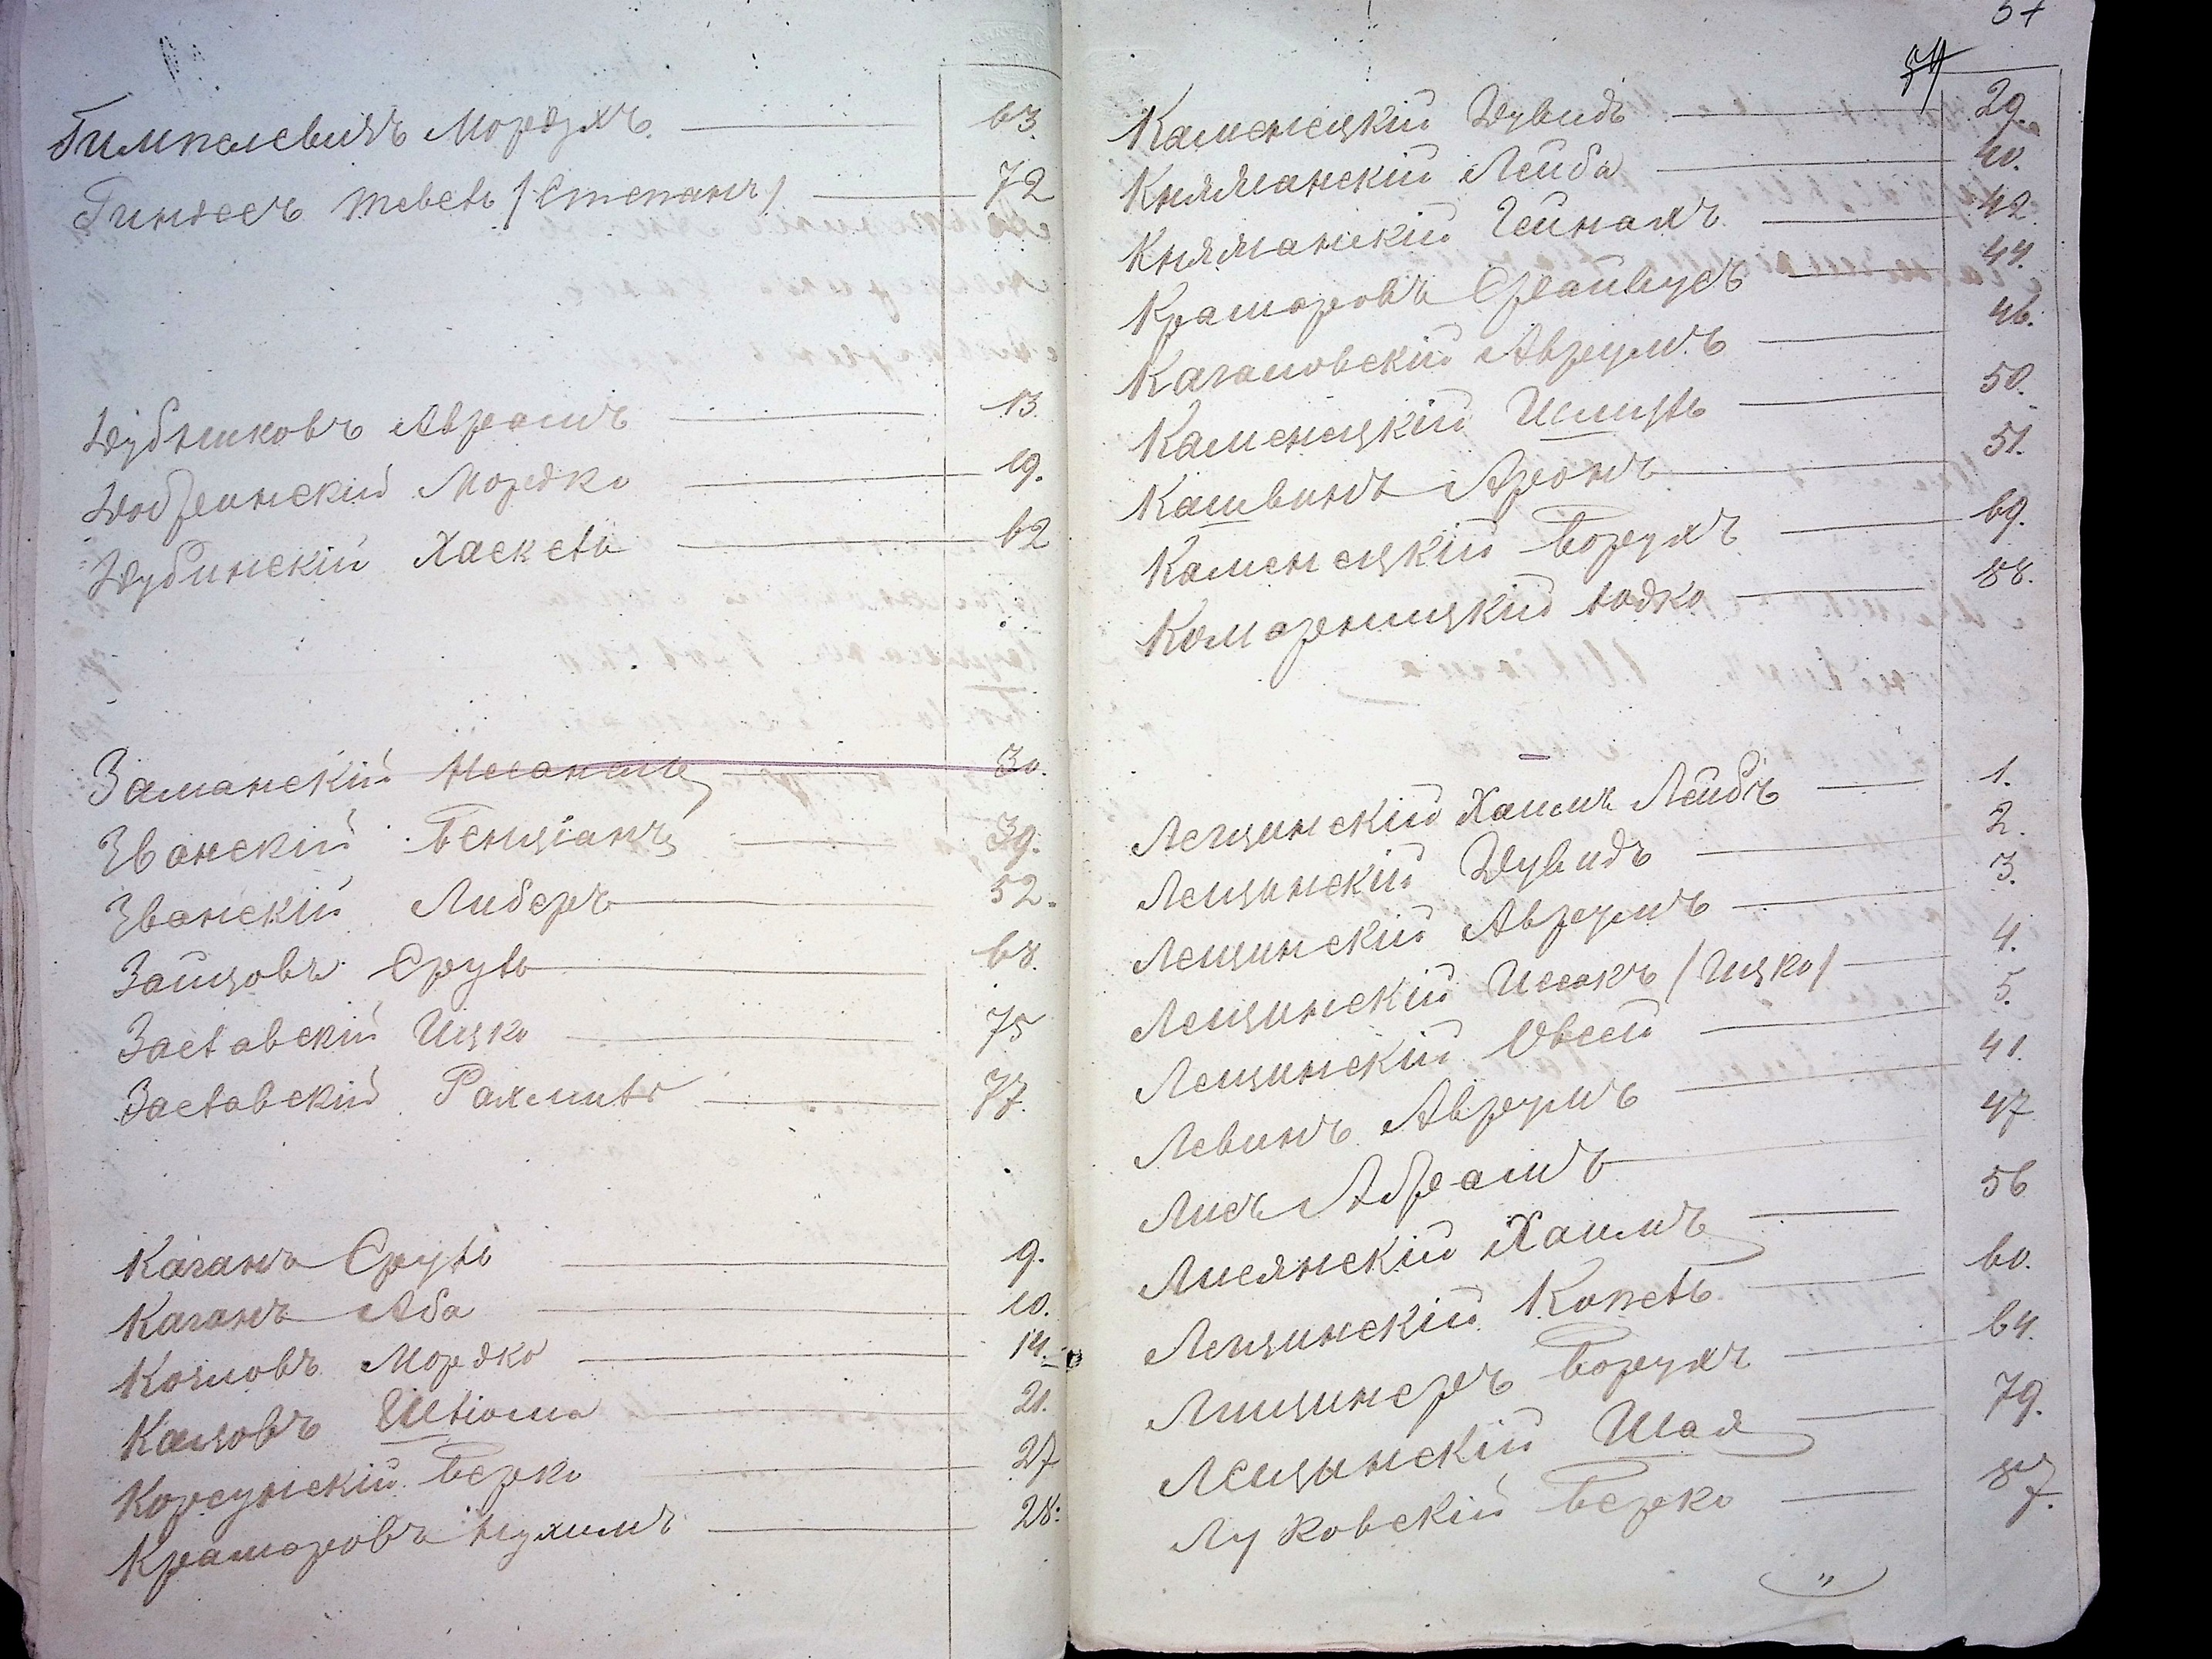 Гимпелевичъ Мордхъ 63.
Гиндесъ Тевель (Степанъ) 72
Дубниковъ Аврамъ 13.
Добринскій Мордко 19.
Дубинскій Хаскель 62
Заманскій 30.
Званскій Бенціанъ 39.
Званскій Либеръ 52.
Зайцовъ Сруль 68.
Заславскій Ицко 75
Заславскій Рахмиль 77.
Каганъ Сруль 9.
Каганъ Аба 10.
Козловъ Мордко 14.
Кацовъ Шліома 21.
Корсунскій Берко 27
Крамаровъ Нухимъ 28.
57
54
Каменецкій Дувидъ 29.
Княжанскій Лейба 40.
Княжанскій Гейнахъ 42.
Крамаровъ 44.
Кагановскій Аврумъ 46.
Каменецкій Шмуль 50.
Кашвинъ Аронъ 51.
Каменецкій Борухъ 69.
Комарницкій Юдко 88.
Лещинскій Хаимъ Лейбъ 1.
Лещинскій Дувидъ 2.
Лещинскій Аврумъ 3.
Лещинскій Исакъ (Ицко) 4.
Лещинскій Овсей 5.
Левинъ Аврумъ 41.
Лисъ Абрамъ 47
Лисянскій Хаимъ 56
Лещинскій Копель 60.
Лищинеръ Борухъ 64.
Лещинскій Шая 79.
Луковскій Берко 87.